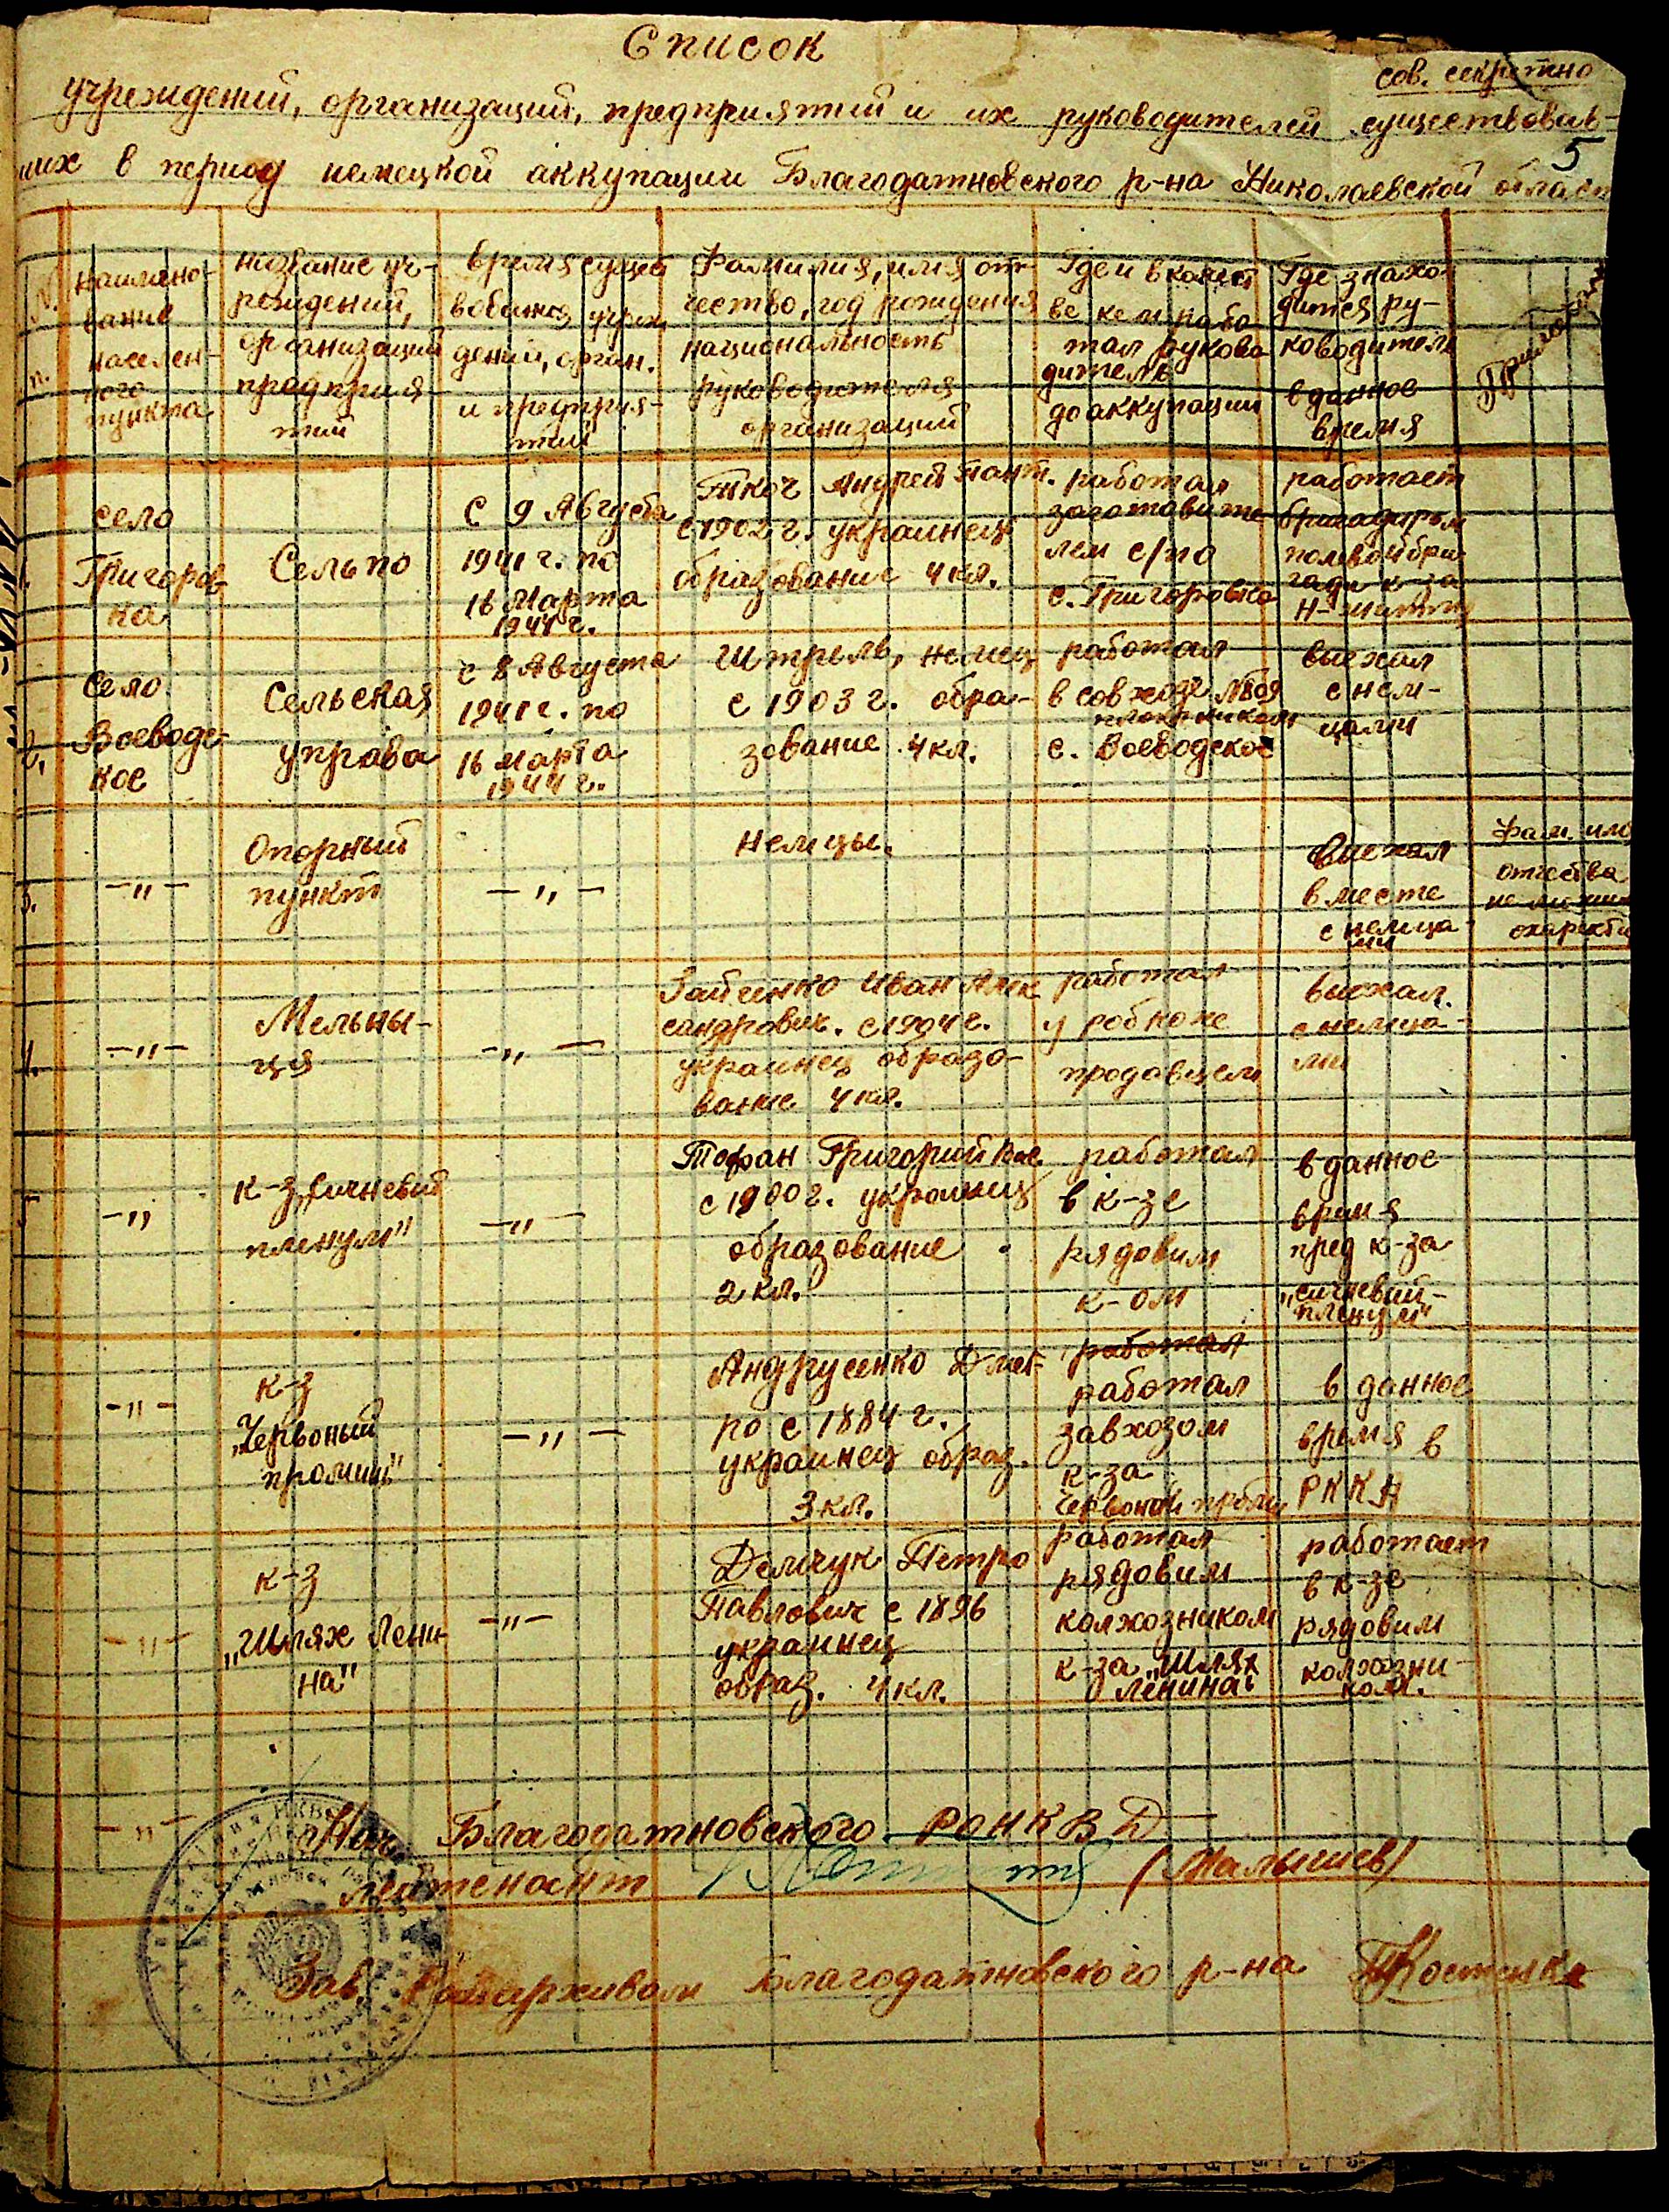 Список
сов. секретно
учреждений, организаций, предприятий и их руководителей существовав-
ших в период немецкой аккупации Благодатновского р-на Николаевской област
5
№
п.
наимено-
вание
населен-
ного
пункта
название уч-
реждений,
организаций
предприя-
тий
время сущес
вобания учреж
дений, орган.
и предприя-
тий
Фамилия, имя отт-
чество, год рождения
национальность
руководителя
организаций
Где и в качест
ве кем рабо
тал руково
дитель
до аккупации
Где знахо-
дится ру-
ководитель
в данное
время
село
Григоров-
ка
Сельпо
с 9 Августа
1941 г. по
16 Марта
1944 г.
Ткач Андрей Пант.
с 1902 г. украинец
образование 4 кл.
работал
заготовите
лем с/по
с. Григоровка
работает
бригадиром
полевой бри
гади к-за
2.
Село
Воеводс-
кое
Сельская
управа
с 8 Августа
1941 г. по
16 Марта
1944 г.
Штрель, немец
с 1903 г. обра-
зование 4 кл.
работал
в совхозе
с. Воеводское
выехал
с нем-
цами
3.
-"-
Опорный
пункт
-"-
Немцы.
Выехал
вместе
с немца-
ми
фам. имя
отчества
4.
-"-
Мельны-
ця
-"-
Зайченко Иван Алек
сандрович. с 1904 г.
украинец образо-
вание 4 кл.
работал
у робкопе
продавцем
выехал.
с немца-
ми
5
-"
к-з „Сичневий
пленум"
-"-
Тофан Григорий Вас.
с 1900 г. украинец
образование
2 кл.
работал
в к-зе
рядовим
к-ом
в данное
время
пред к-за
„сичневий-
пленум"
-"-
к-з
„Червоный
проминь"
-"-
Андрусенко Дмит-
ро с 1884 г.
украинец образ.
3 кл.
работал
работал
завхозом
к-за
в данное
время в
РККА
-"-
к-з
„Шлях Лени-
на"
-"-
Демчук Петро
Павлович с 1896
украинец
образ. 4 кл.
работал
рядовим
колхозником
к-за „Шлях
Ленина"
работает
в к-зе
рядовим
колхозни-
ком.
-"-
Нач Благодатновского РОНКВД
лейтенант (Малышев)
Зав. Райархивом Благодатновского р-на Костенко